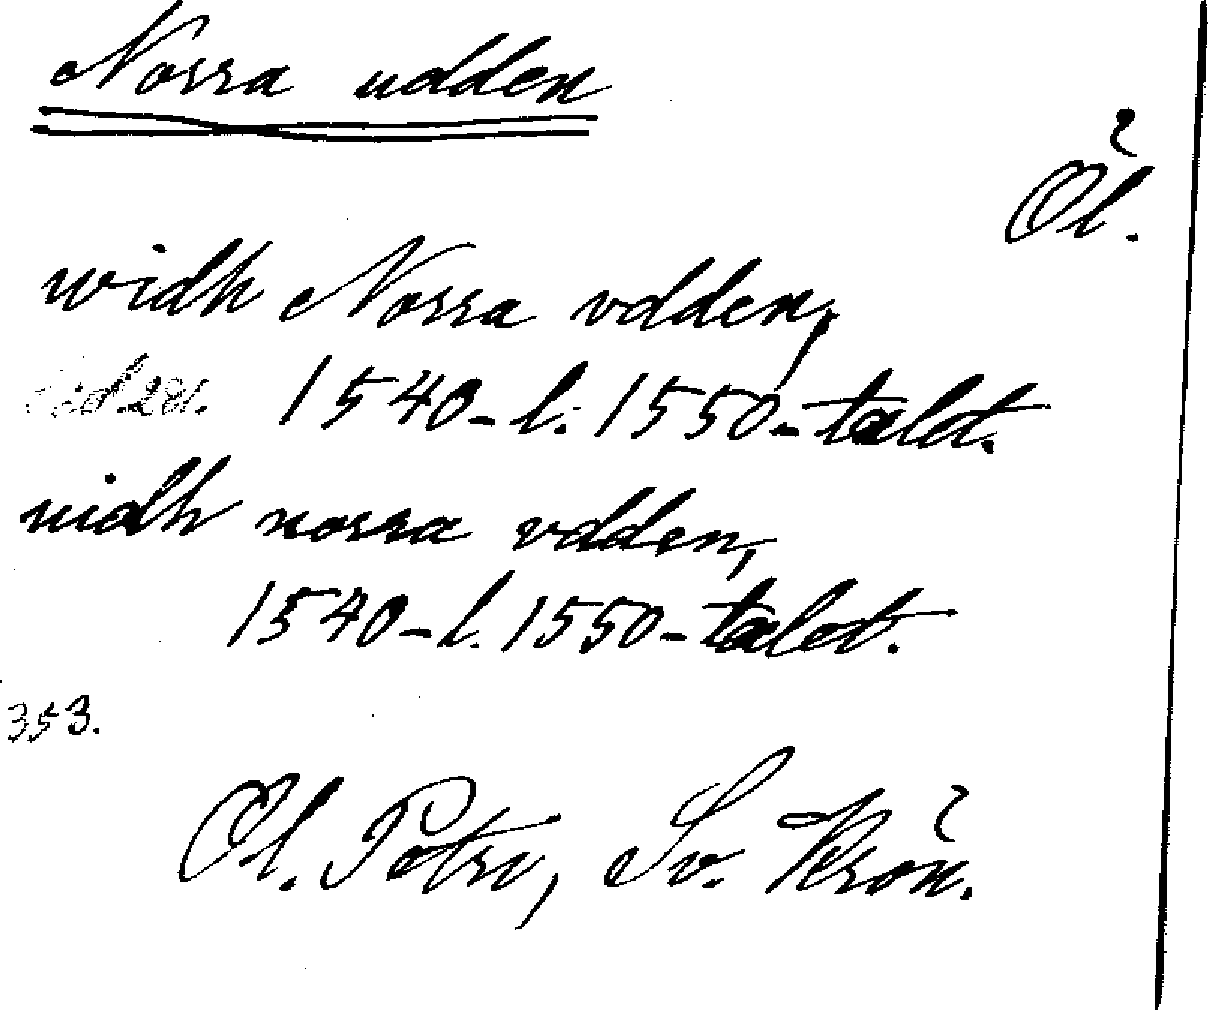 Norra udden
Öl.
widh Norra vdden,
1540- l. 1550-talet.
vidh norra vdden,
1540- l. 1550-talet.
353.
Ol. Petri, Sv. Krön.